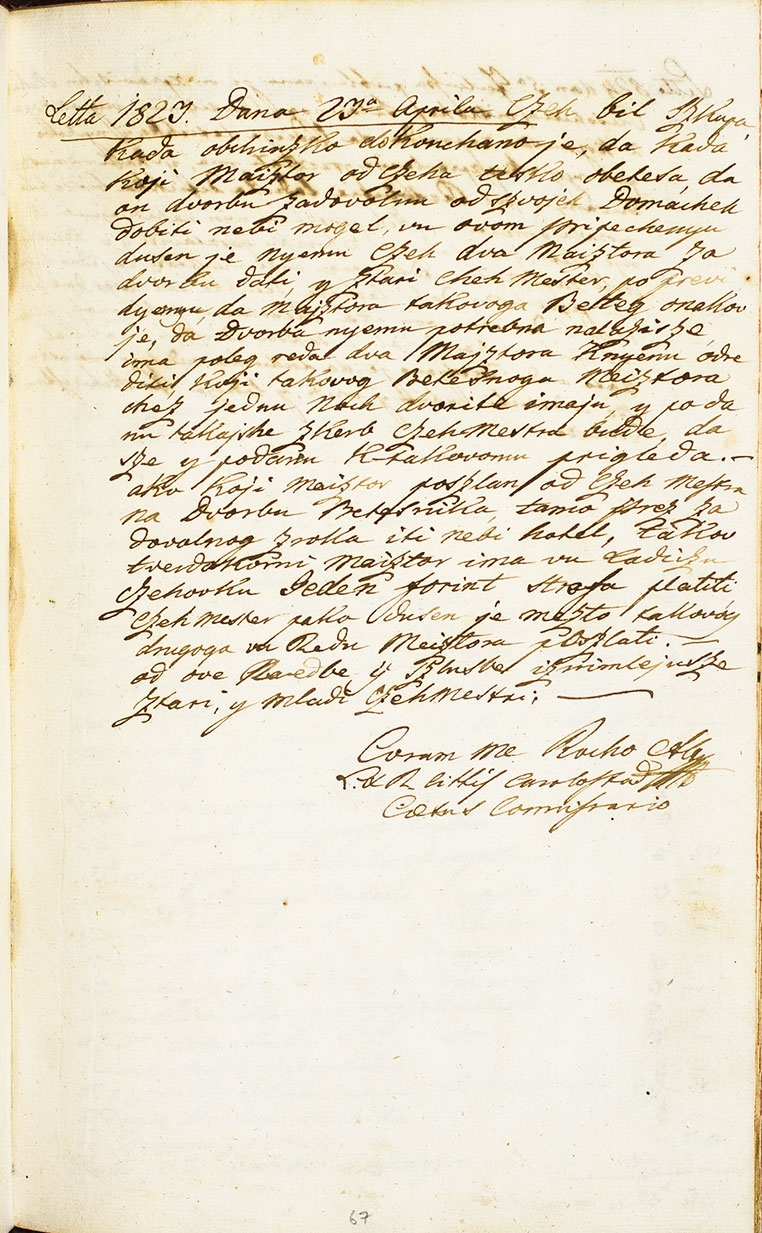 Letta 1823. Dana 23ª Aprila Czeh bil Szkupa,
kada obchinzko dokonchano je, da kada
koji Maisztor od Czeha tesko obetesa, da
on dvorbu zadovolnu od szvojeh Domácheh
dobiti nebi mogel, vu ovom pripechenyu
dusen je nyemu Czeh dva Maisztora za
dvorbu dati, y sztari Cheh Mester, po previ
dyenyu, da Majsztora takovoga Betteg onakov
je, da Dvorba nyemu potrebna nalazisze
ima poleg reda dva Majsztora knyemu odre
diti koji takovog Betesnoga Meisztora
chez jednu Noch dvorite imaju, y po da
nu takajshe szkerb Czeh Mestra bude, da
sze y podanu k-takovomu prigleda.—
ako koji Meisztor poszlan od Czeh Mestra
na Dvorbu Betesnika tamo prez za
dovolnog zroka iti nebi hotel, takov
tverdokorni Maisztor ima vu Ladiczu
Czehovzku Jeden forint strofa platiti
Czeh Mester pako dusen je mezto takovog
drugoga vu Redu Meisztora poszlati.—
od ove Naredbe y Szlusbe izvimlejusze
Sztari, y mladi Czeh Mestri; —
Coram me Rocho
L. & R. Cittis Carolosta
Cætus Commissario
67